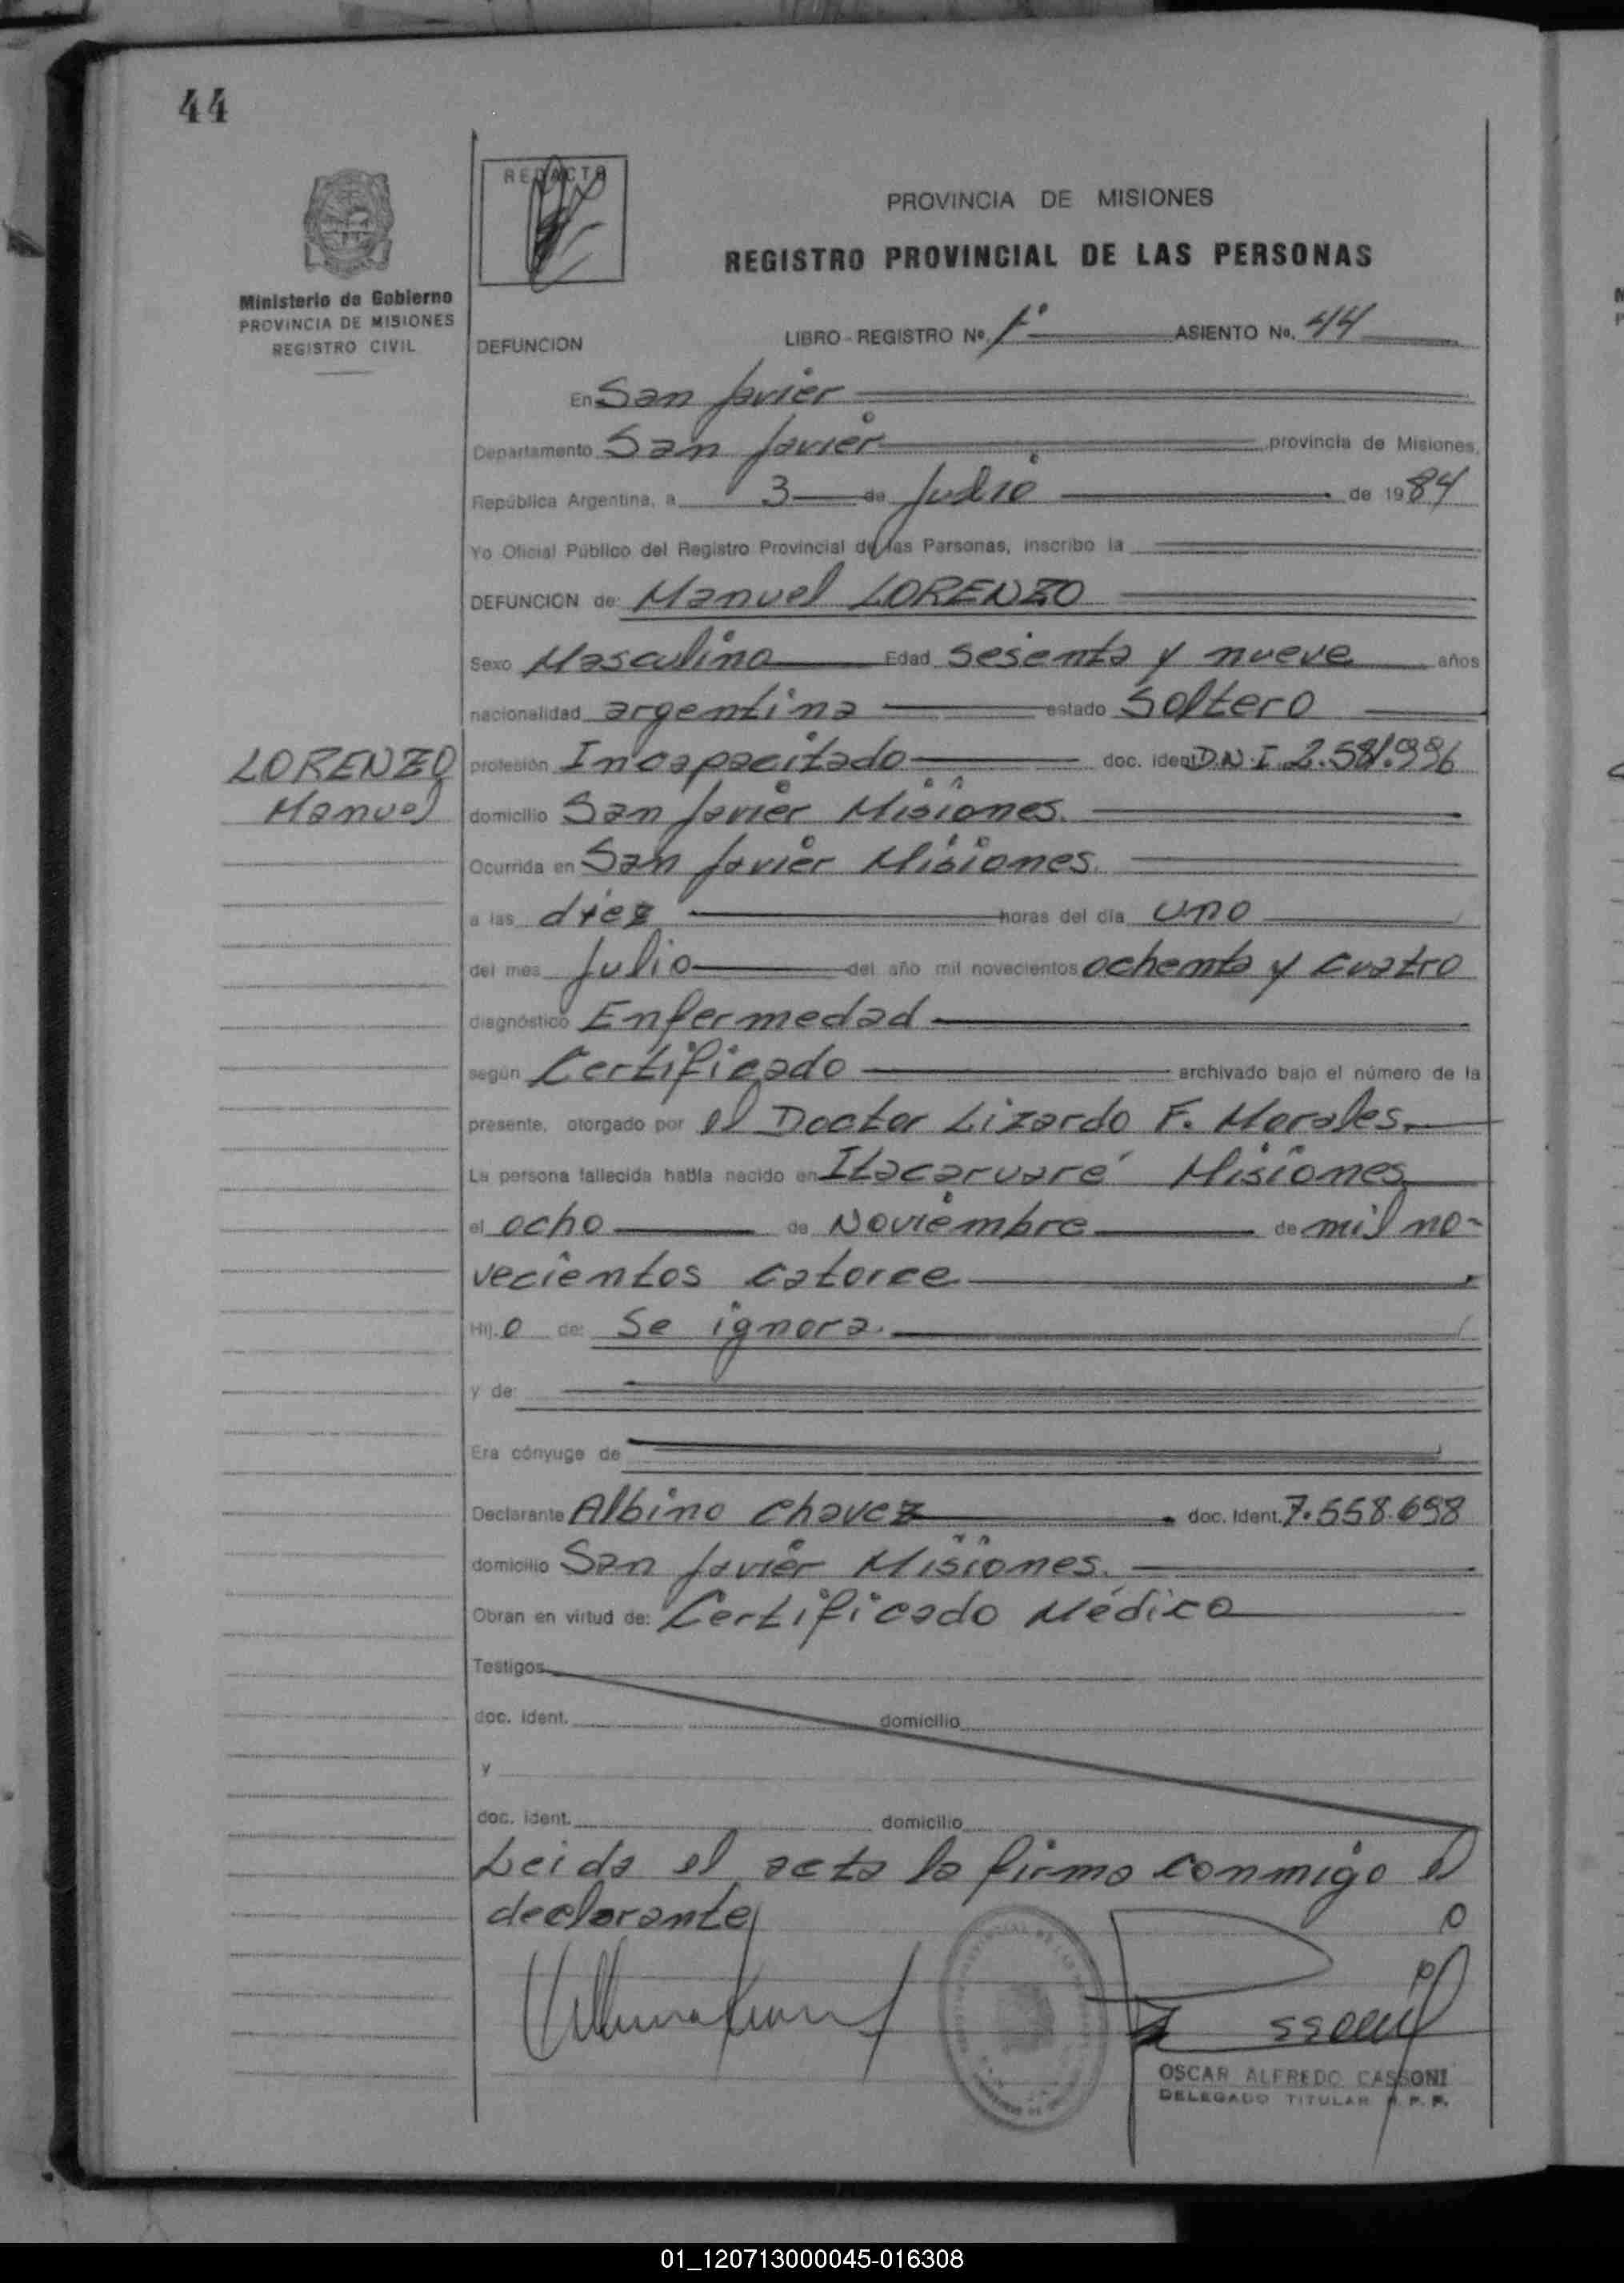 44
REDACTO
PROVINCIA DE MISIONES
REGISTRO PROVINCIAL DE LAS PERSONAS
Ministerio de Gobierno
PROVINCIA DE MISIONES
REGISTRO CIVIL
DEFUNCION LIBRO - REGISTRO Nº 1º ASIENTO No. 44
En San Javier
Departamento San Javier provincia de Misiones,
República Argentina, a 3 de Julio de 1984
Yo Oficial Público del Registro Provincial de las Personas, inscribo la
DEFUNCION de: Manuel LORENZO
Sexo Masculino Edad sesenta y nueve años
nacionalidad argentina estado Soltero
LORENZO
Manuel
profesión Incapacitado doc. ident D.N.I. 2.581.996
domicilio San Javier Misiones.
Ocurrida en San Javier Misiones.
a las diez horas del día uno
del mes Julio del año mil novecientos ochenta y cuatro
diagnóstico Enfermedad
según Certificado archivado bajo el número de la
presente, otorgado por el Doctor Lizardo F. Morales.
La persona fallecida había nacido en Itacaruaré Misiones
el ocho de Noviembre de mil no-
vecientos catorce
Hij.o de: Se ignora.
y de:
Era cónyuge de
Declarante Albino Chavez doc. Ident. 7.558.698
domicilio San Javier Misiones.
Obran en virtud de: Certificado Médico
Testigos
doc. ident. domicilio
y
doc. ident. domicilio
Leida el acta la firma conmigo el
declarante
OSCAR ALFREDO CASSONI
DELEGADO TITULAR R. P. P.
01_120713000045-016308